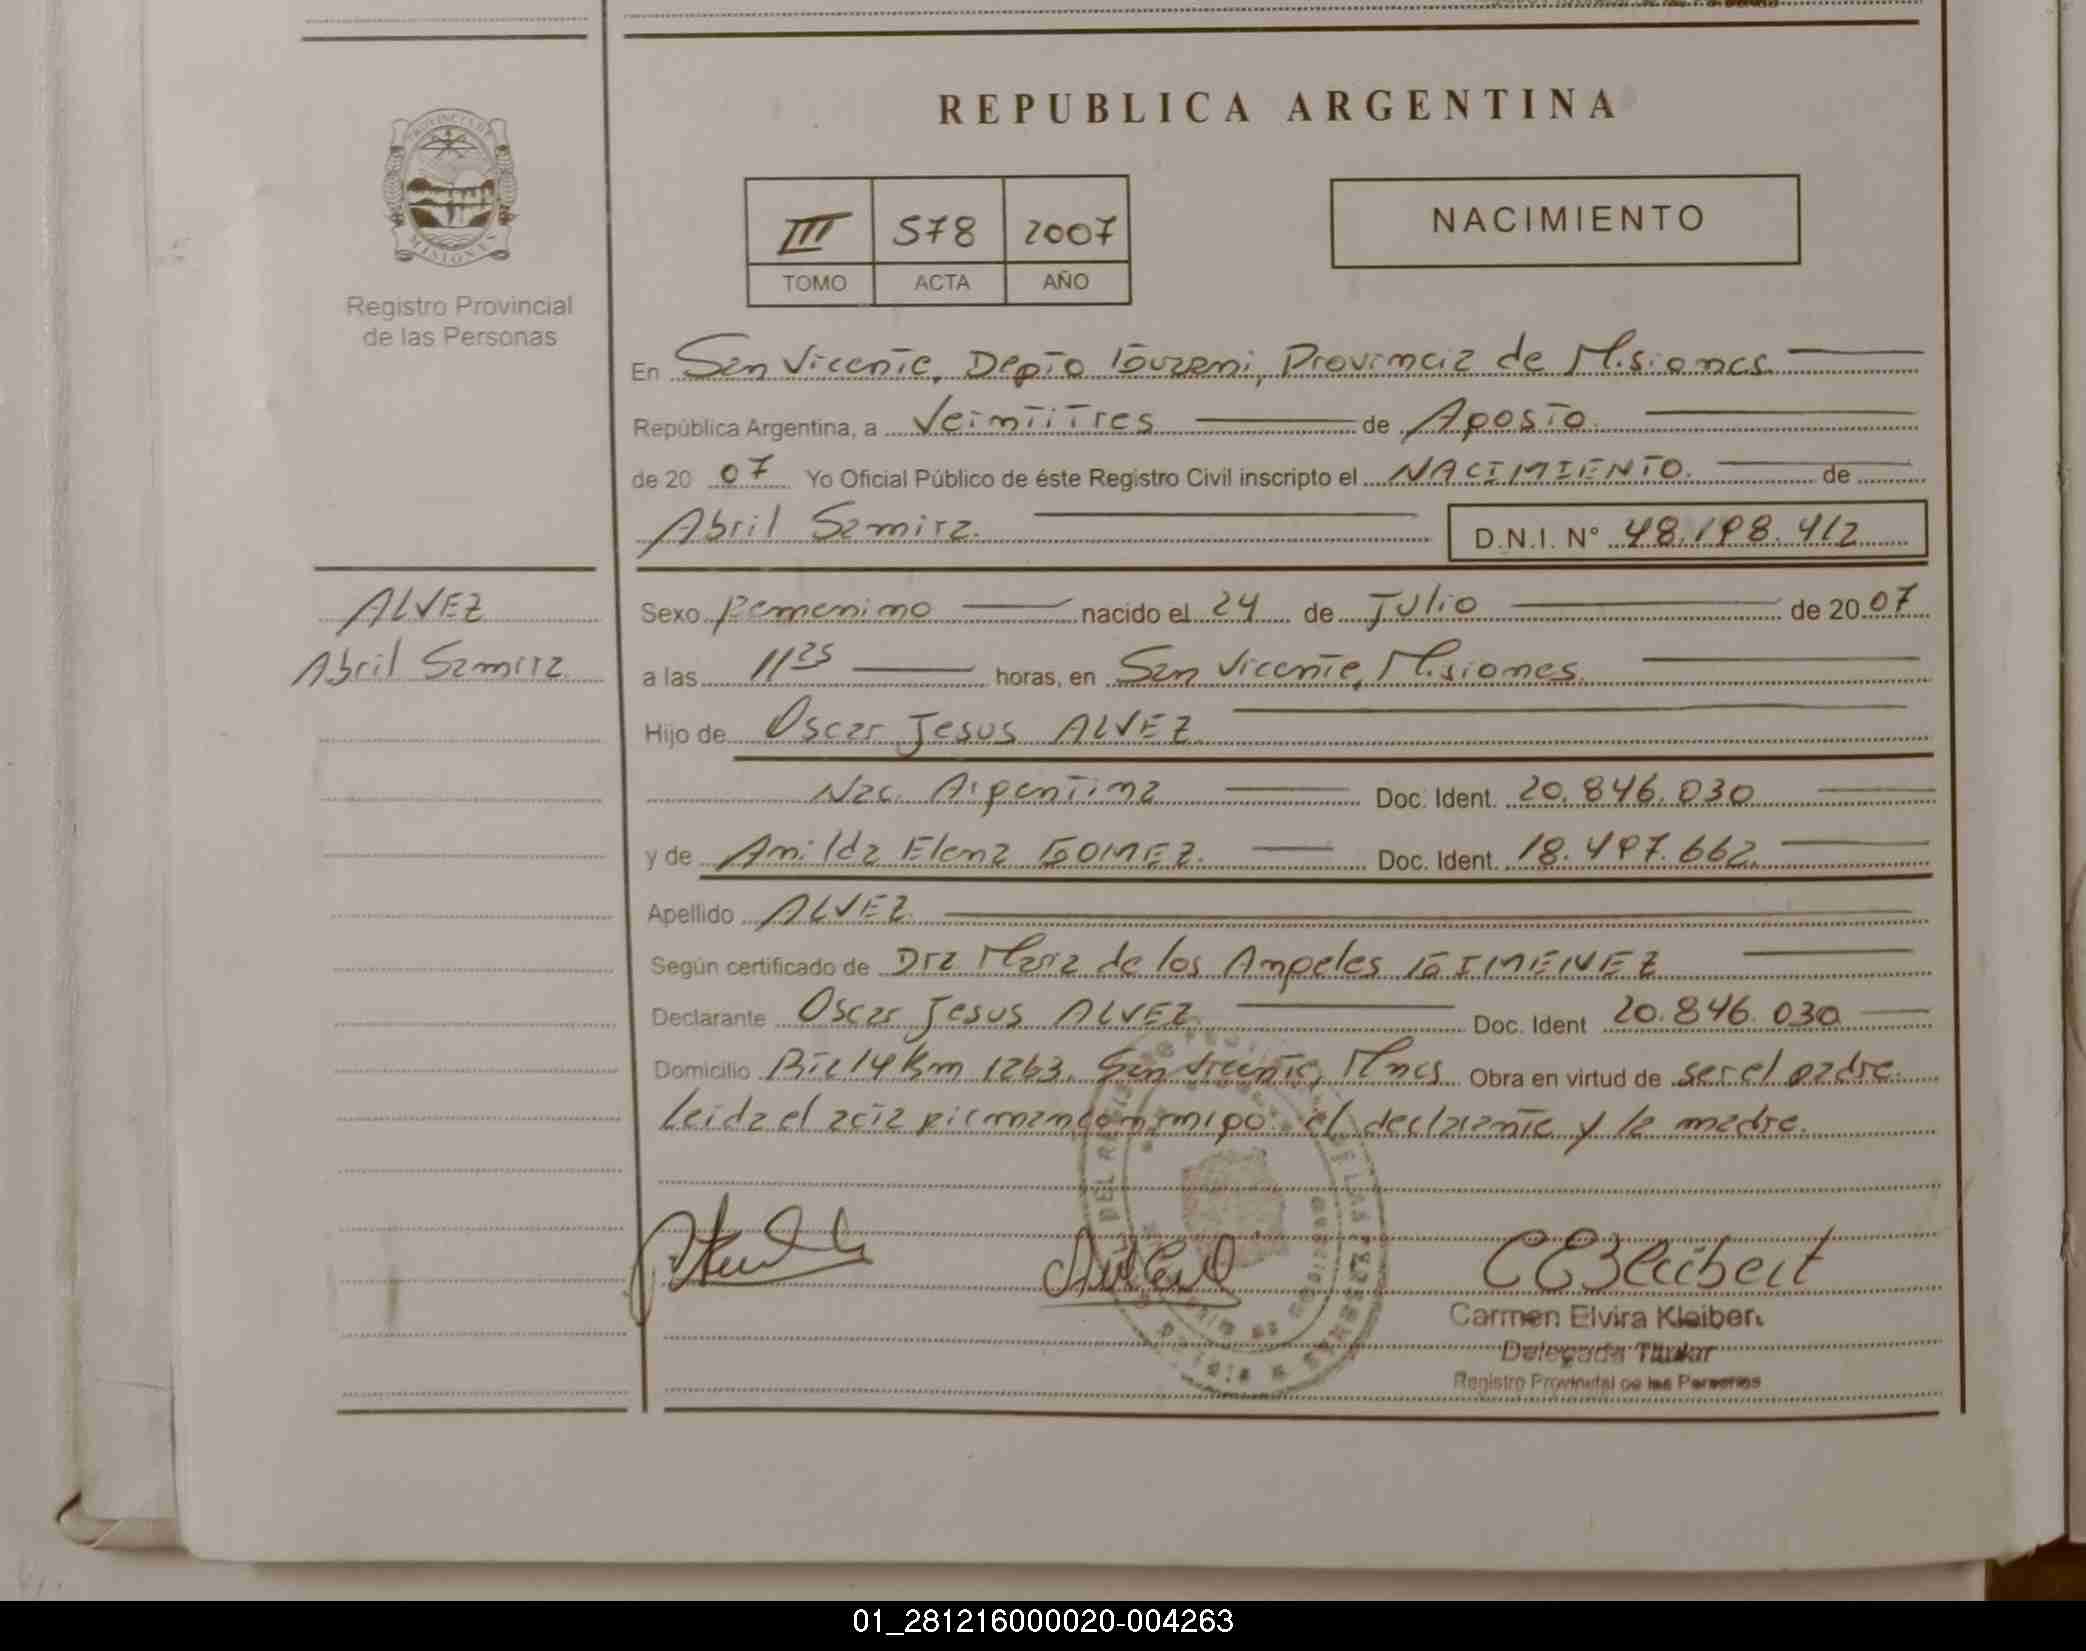 REPUBLICA ARGENTINA
PROVINCIA DE MISIONES
Registro Provincial
de las Personas
III 578 2007
TOMO ACTA AÑO
NACIMIENTO
En San Vicente, Depto Guaraní, Provincia de Misiones
República Argentina, a Veintitres de Agosto
de 2007 Yo Oficial Público de éste Registro Civil inscripto el NACIMIENTO. de
Abril Samira. D.N.I. Nº 48.198.412
ALVEZ
Abril Samira
Sexo Femenino nacido el 24 de Julio de 2007
a las 11 25 horas, en San Vicente, Misiones.
Hijo de Oscar Jesus ALVEZ
Nac. Argentina Doc. Ident. 20.846.030
y de Anilda Elena GOMEZ. Doc. Ident. 18.497.662
Apellido ALVEZ
Según certificado de Dra Maria de los Angeles GIMENEZ
Declarante Oscar Jesus ALVEZ Doc. Ident 20.846.030
Domicilio 14 Km 1263. San Vicente, Mnes Obra en virtud de ser el padre.
Leida el acta firman conmigo el declarante y la madre.
Carmen Elvira Kleibert
Delegada Titular
Registro Provincial de las Personas
01_281216000020-004263